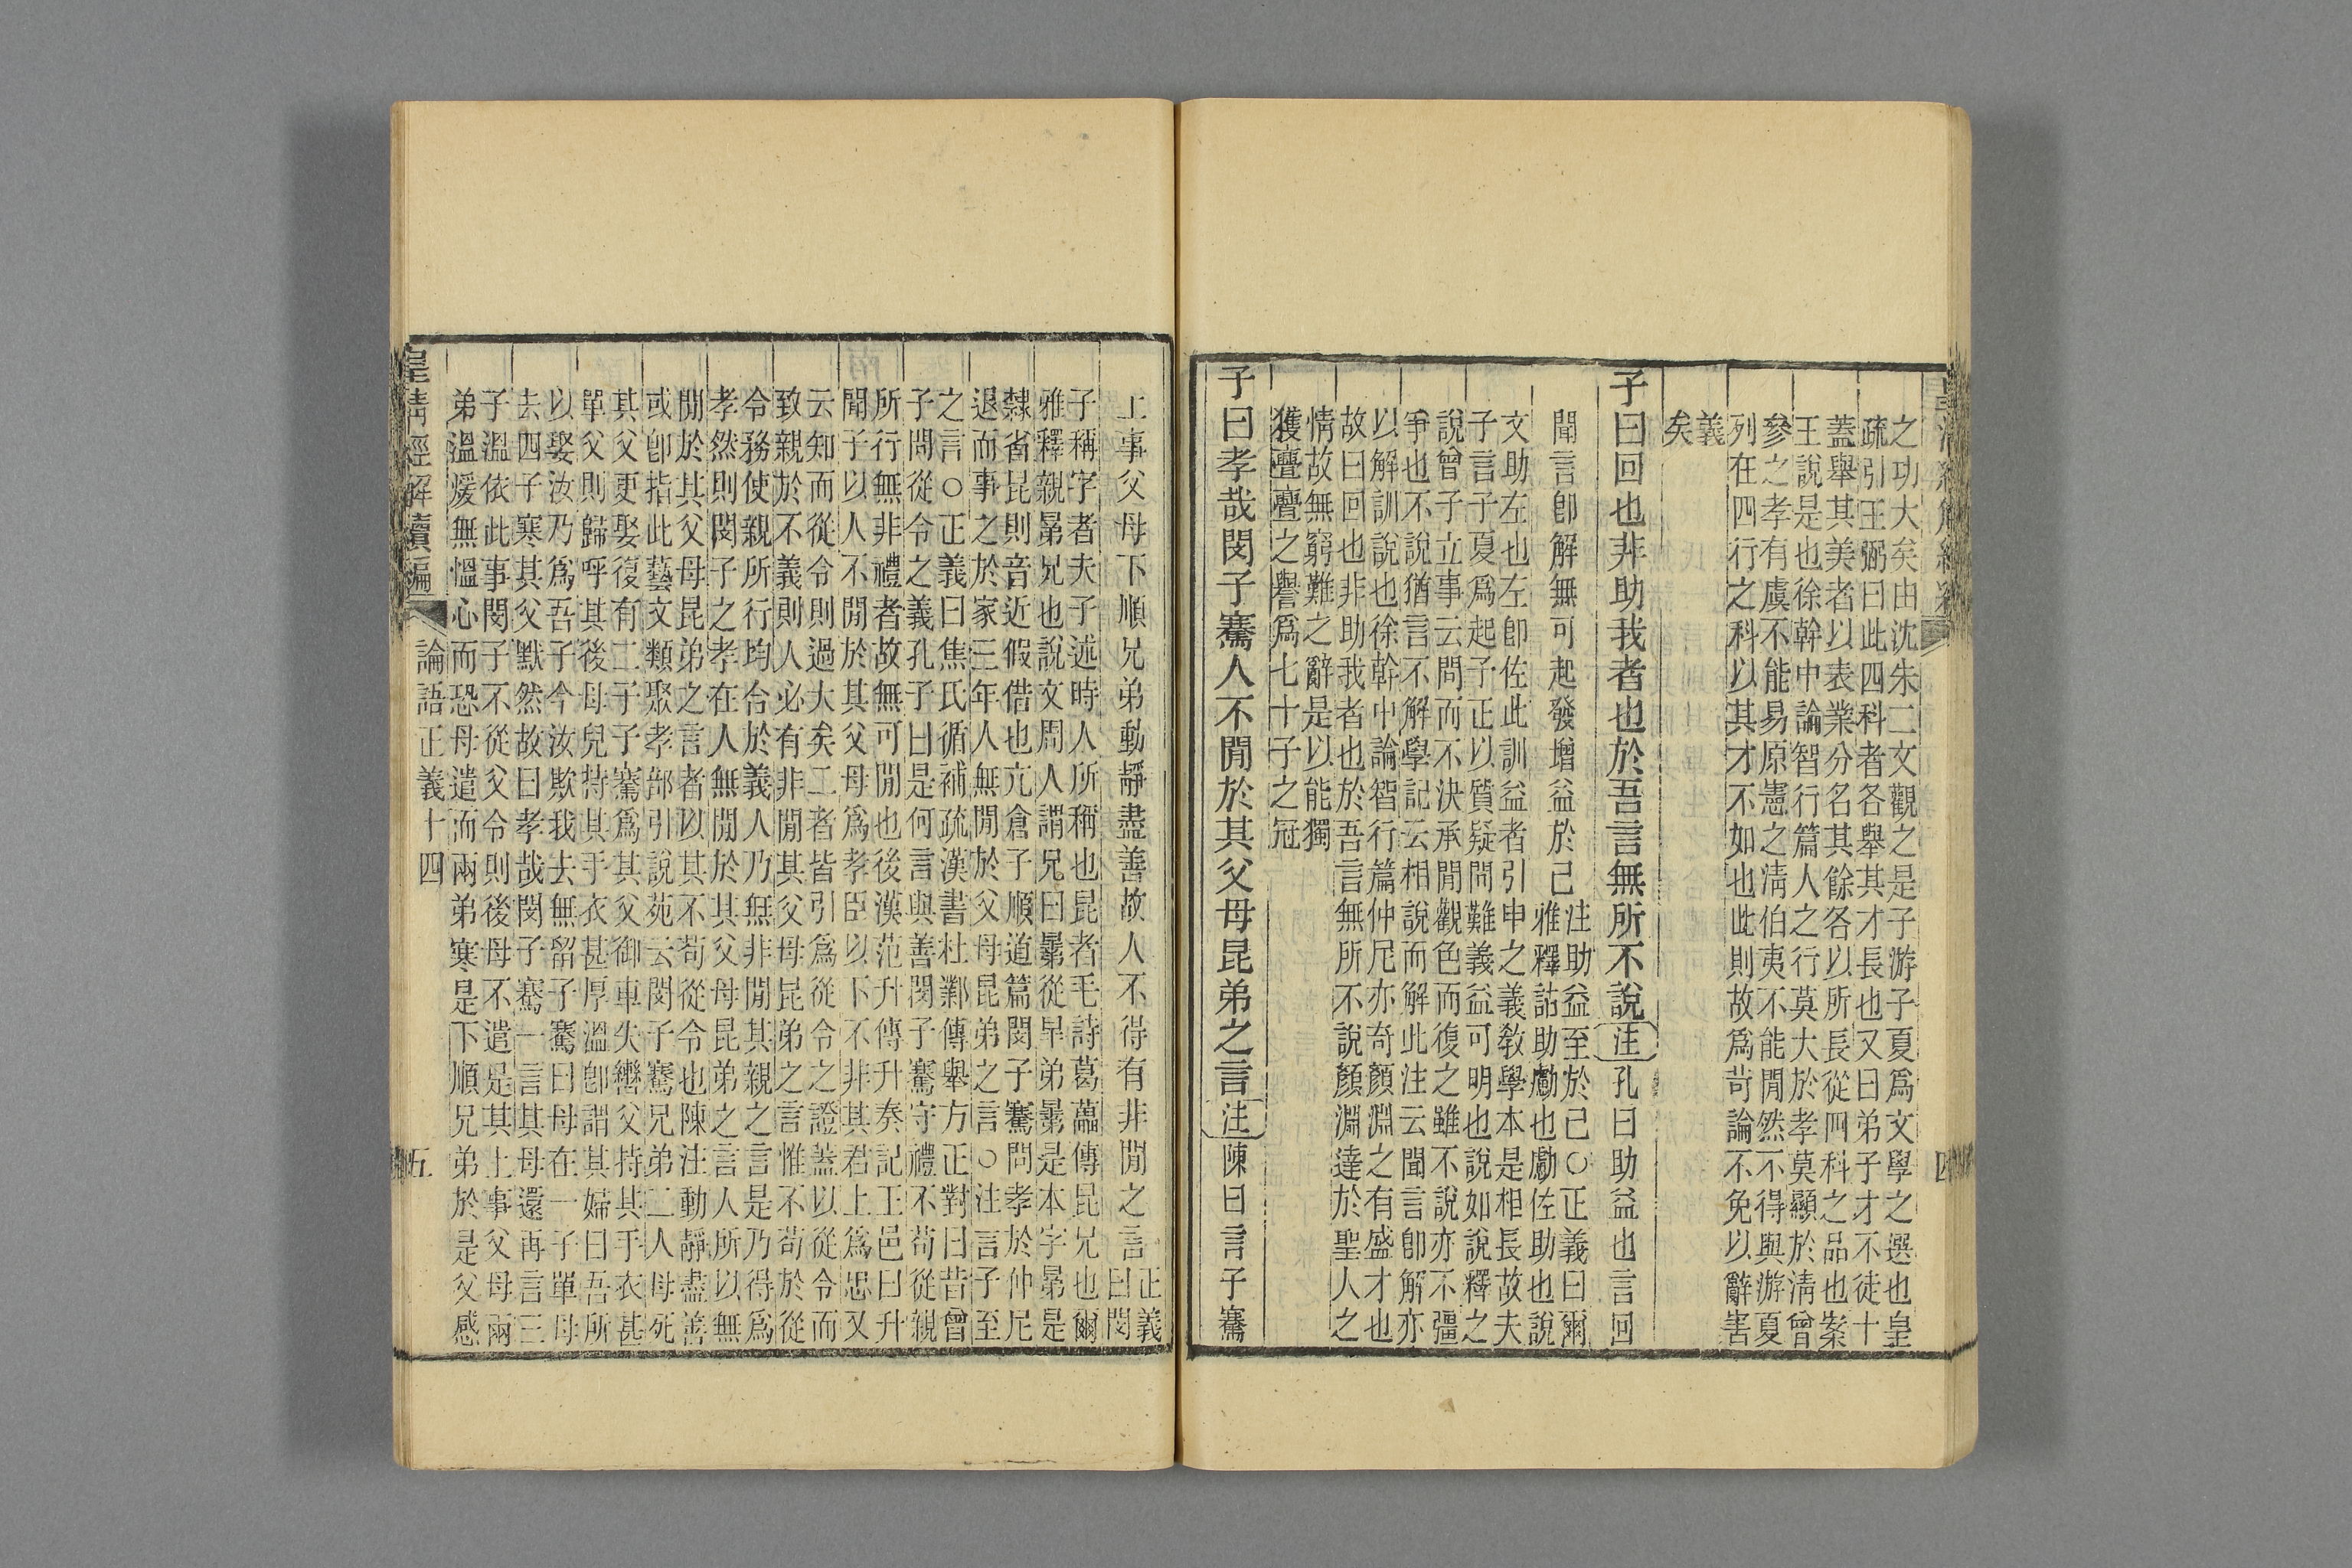 之功大矣由沈朱二文觀之是子游子夏爲文學之選也皇
疏引王弼曰此四科者各舉其才長也又曰弟子才不徒十
蓋舉其美者以表業分名其餘各以所長從四科之品也案
王說是也徐幹中論智行篇人之行莫大於孝莫顯於淸曾
參之孝有虞不能易原憲之淸伯夷不能閒然不得與游夏
列在四行之科以其才不如也此則故爲苛論不免以辭害
義
矣
子曰回也非助我者也於吾言無所不說注孔曰助益也言回
聞言卽解無可起發增益於己
注助益至於己○正義曰爾
雅釋詁助勴也勴佐助也說
文助左也左卽佐此訓益者引申之義敎學本是相長故夫
子言子夏爲起子正以質疑問難義益可明也說如說釋之
說曾子立事云問而不決承閒觀色而復之雖不說亦不彊
爭也不說猶言不解學記云相說而解此注云聞言卽解亦
以解訓說也徐幹中論智行篇仲尼亦奇顏淵之有盛才也
故曰回也非助我者也於吾言無所不說顏淵達於聖人之
情故無窮難之辭是以能獨
獲亹亹之譽爲七十子之冠
子曰孝哉閔子騫人不閒於其父母昆弟之言注陳曰言子騫
上事父母下順兄弟動靜盡善故人不得有非閒之言
正義
曰閔
子稱字者夫子述時人所稱也昆者毛詩葛藟傳昆兄也爾
雅釋親晜兄也說文周人謂兄曰晜從晜弟晜是本字晜是
隸省昆則音近假借也亢倉子順道篇閔子騫問孝於仲尼
退而事之於家三年人無閒於父母昆弟之言○注言子至
之言○正義曰焦氏循補疏漢書杜鄴傳舉方正對曰昔曾
子問從令之義孔子曰是何言與善閔子騫守禮不苟從親
所行無非禮者故無可閒也後漢范升傳升奏記王邑曰升
聞子以人不閒於其父母爲孝臣以下不非其君上爲忠又
云知而從令則過大矣二者皆引爲從令之證蓋以從令而
致親於不義則人必有非閒其父母昆弟之言惟不苟於從
令務使親所行均合於義人乃無非閒其親之言是乃得爲
孝然則閔子之孝在人無閒於其父母昆弟之言人所以無
閒於其父母昆弟之言者以其不苟從令也陳注動靜盡善
或卽指此藝文類聚孝部引說苑云閔子騫兄弟二人母死
其父更娶復有二子子騫爲其父御車失轡父持其手衣甚
單父則歸呼其後母兒持其手衣甚厚溫卽謂其婦曰吾所
以娶汝乃爲吾子今汝欺我去無留子騫曰母在一子單母
去四子寒其父默然故曰孝哉閔子騫一言其母還再言三
子溫依此事閔子不從父令則後母不遣是其上事父母兩
弟溫煖無慍心而恐母遣而兩弟寒是下順兄弟於是父感
皇淸經解續編
論語正義十四
五